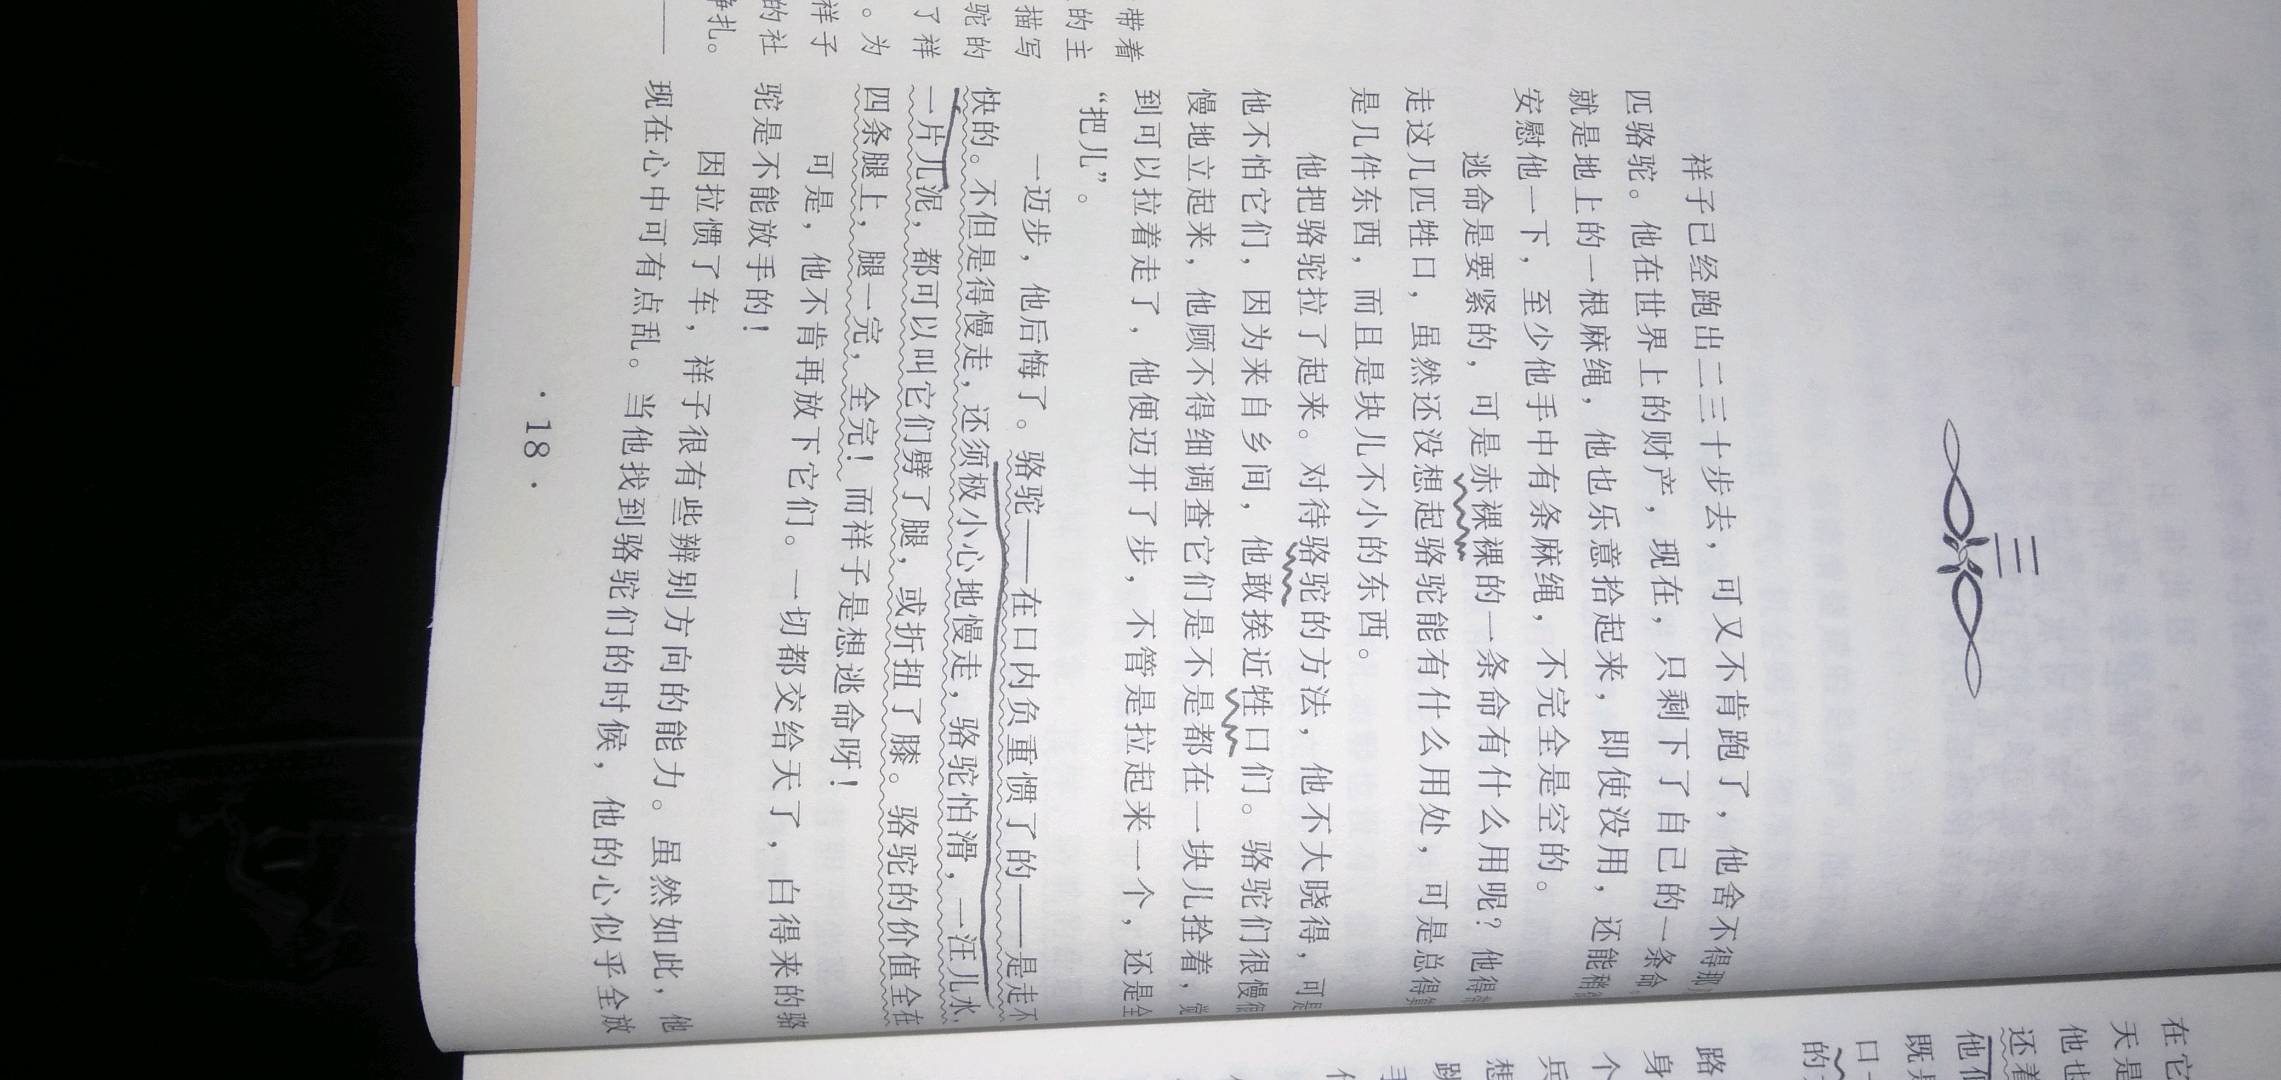 三
祥子已经跑出二三十步去，可又不肯跑了，他舍不得那
匹骆驼。他在世界上的财产，现在，只剩下了自己的一条命
就是地上的一根麻绳，他也乐意拾起来，即使没用，还能稍
安慰他一下，至少他手中有条麻绳，不完全是空的。
逃命是要紧的，可是赤裸裸的一条命有什么用呢？他得
走这几匹牲口，虽然还没想起骆驼能有什么用处，可是总得
是几件东西，而且是块儿不小的东西。
他把骆驼拉了起来。对待骆驼的方法，他不大晓得，可
他不怕它们，因为来自乡间，他敢挨近牲口们。骆驼们很慢
慢地立起来，他顾不得细调查它们是不是都在一块儿拴着，
到可以拉着走了，他便迈开了步，不管是拉起来一个，还是全
“把儿”。
一迈步，他后悔了。骆驼——在口内负重惯了的——是走不
快的。不但是得慢走，还须极小心地慢走，骆驼怕滑，一汪儿水，
一片儿泥，都可以叫它们劈了腿，或折扭了膝。骆驼的价值全在
四条腿上，腿一完，全完！而祥子是想逃命呀！
可是，他不肯再放下它们。一切都交给天了，白得来的骆
驼是不能放手的！
因拉惯了车，祥子很有些辨别方向的能力。虽然如此，他
现在心中可有点乱。当他找到骆驼们的时候，他的心似乎全放
·18·
带着
的主
描写
驼的
了祥
。为
祥子
的社
挣扎。
——
在它
天是
他也
还着
他们
既是
口
的
路
身
个
兵
想
跳